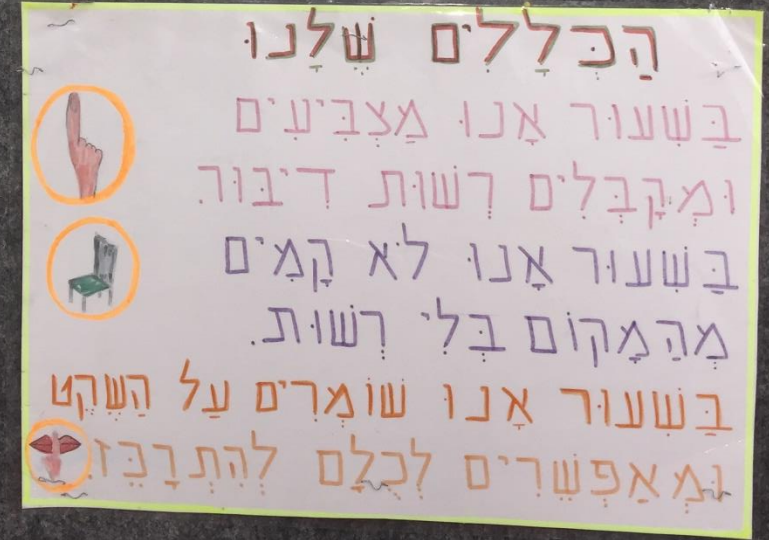 הַכְּלָלִים שֶׁלָּנוּ
בַּשִּׁעוּר אָנוּ מַצְבִּיעִים
וּמְקַבְּלִים רְשׁוּת דִיבּוּר.
בַּשִּׁעוּר אָנוּ לֹא קָמִים
מְהַמָקוֹם בְּלִי רְשׁוּת.
בַּשִּׁעוּר אָנוּ שׁוֹמְרִים עַל הַשֶׁקֶט
וּמְאַפְשְׁרִים לְכֻלָם לְהִתְרַכֵּז.